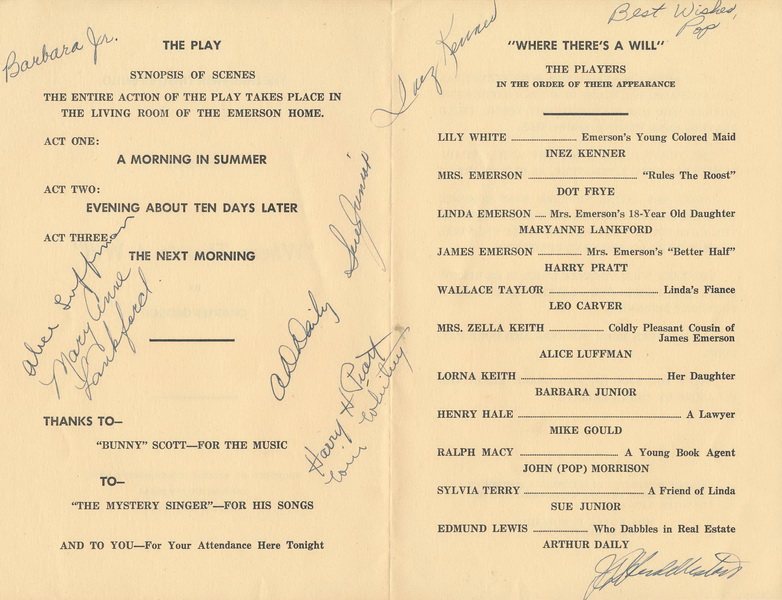 Barbara Jr.
THE PLAY
SYNOPSIS OF SCENES
THE ENTIRE ACTION OF THE PLAY TAKES PLACE IN
THE LIVING ROOM OF THE EMERSON HOME.
ACT ONE:
A MORNING IN SUMMER
ACT TWO:
EVENING ABOUT TEN DAYS LATER
ACT THREE:
THE NEXT MORNING
Alice Luffman
Mary Anne
Lankford
Sue Junior
A D Daily
Harry H Pratt
THANKS TO—
"BUNNY" SCOTT—FOR THE MUSIC
TO—
"THE MYSTERY SINGER"—FOR HIS SONGS
AND TO YOU—For Your Attendance Here Tonight
Inez Kenner
Best Wishes,
Pop
"WHERE THERE'S A WILL"
THE PLAYERS
IN THE ORDER OF THEIR APPEARANCE
LILY WHITE ........ Emerson's Young Colored Maid
INEZ KENNER
MRS. EMERSON ........ "Rules The Roost"
DOT FRYE
LINDA EMERSON ..... Mrs. Emerson's 18-Year Old Daughter
MARYANNE LANKFORD
JAMES EMERSON ........ Mrs. Emerson's "Better Half"
HARRY PRATT
WALLACE TAYLOR ........ Linda's Fiance
LEO CARVER
MRS. ZELLA KEITH ........ Coldly Pleasant Cousin of
James Emerson
ALICE LUFFMAN
LORNA KEITH ........ Her Daughter
BARBARA JUNIOR
HENRY HALE ........ A Lawyer
MIKE GOULD
RALPH MACY ........ A Young Book Agent
JOHN (POP) MORRISON
SYLVIA TERRY ........ A Friend of Linda
SUE JUNIOR
EDMUND LEWIS ........ Who Dabbles in Real Estate
ARTHUR DAILY